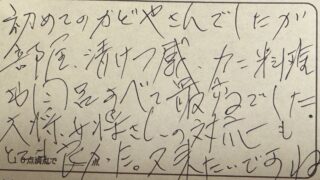 初めてのかどやさんでしたが
部屋、清けつ感、カニ料理
お品すべて最高でした。
大将、女将さんの対応も
とても良かった。又来たいですね
点